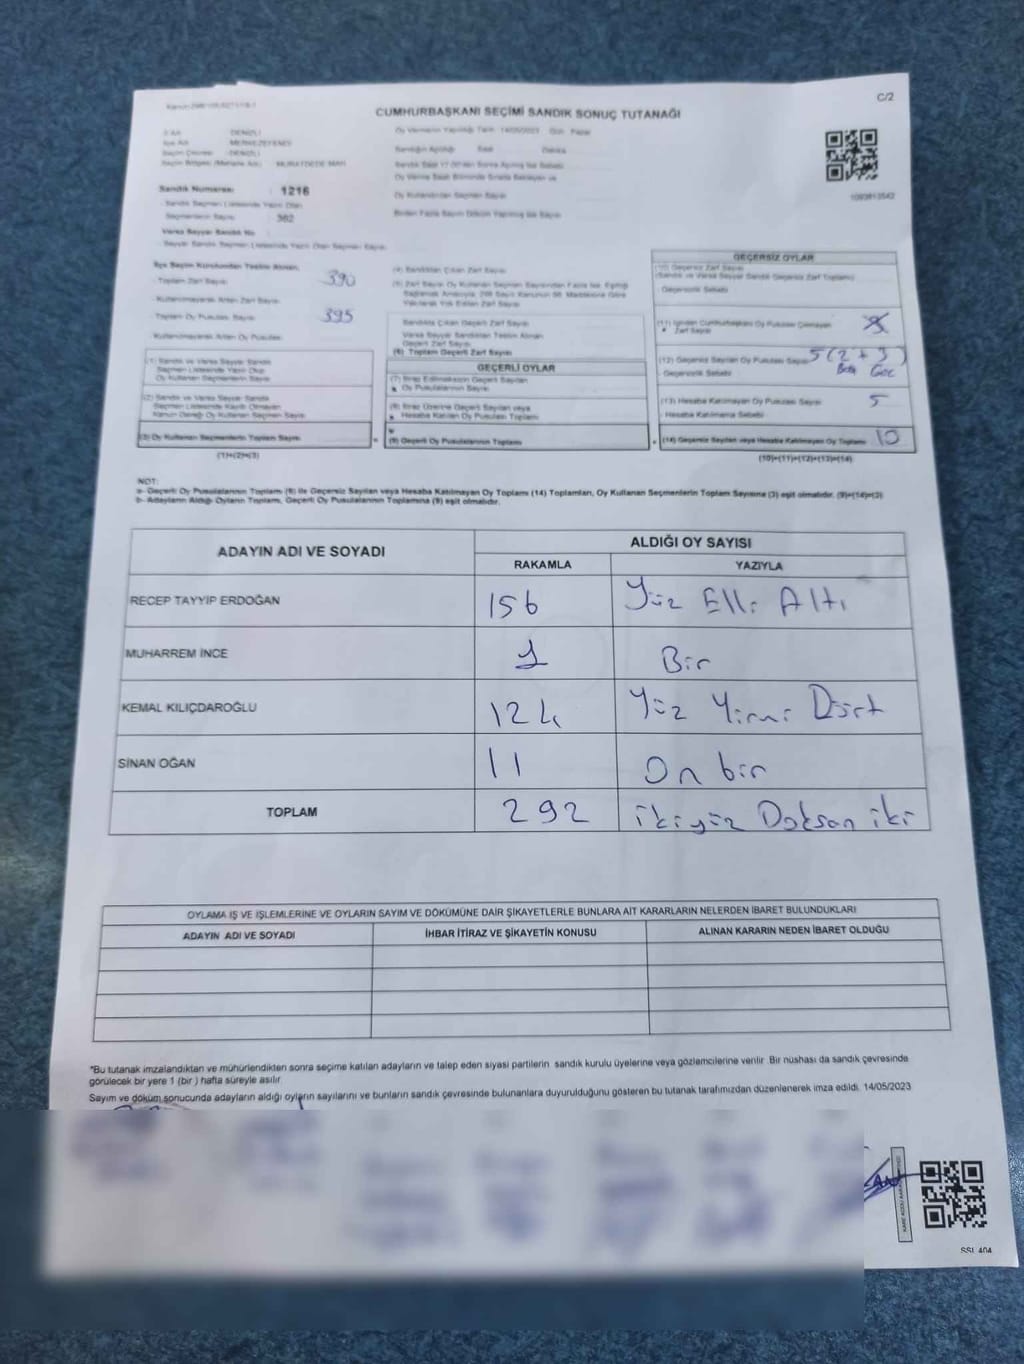 C/2
CUMHURBAŞKANI SEÇİMİ SANDIK SONUÇ TUTANAĞI
DENİZLİ
MERKEZEFENDİ
DENİZLİ
MURATDEDE MAH.
Sandık Numarası : 1216
Sandık Seçmen Listesinde Yazılı Olan
Seçmenlerin Sayısı : 382
Toplam Zarf Sayısı 390
Kullanılmayarak Artan Zarf Sayısı
Toplam Oy Pusulası Sayısı 395
Kullanılmayarak Artan Oy Pusulası
(1) Sandık ve Varsa Seyyar Sandık
Seçmen Listesinde Yazılı Olup
Oy Kullanan Seçmenlerin Sayısı
(2) Sandık ve Varsa Seyyar Sandık
Seçmen Listesinde Kayıtlı Olmayan
Kanun Gereği Oy Kullanan Seçmenlerin Sayısı
(3) Oy Kullanan Seçmenlerin Toplam Sayısı
(1)+(2)=(3)
(4) Sandıktan Çıkan Zarf Sayısı
Sandıkta Çıkan Geçerli Zarf Sayısı
Varsa Seyyar Sandıktan Teslim Alınan
Geçerli Zarf Sayısı
(6) Toplam Geçerli Zarf Sayısı
GEÇERLİ OYLAR
(7) İtiraz Edilmeksizin Geçerli Sayılan
Oy Pusulalarının Sayısı
(8) İtiraz Üzerine Geçerli Sayılan veya
Hesaba Katılan Oy Pusulası Toplamı
(9) Geçerli Oy Pusulalarının Toplamı
GEÇERSİZ OYLAR
(10) Geçersiz Zarf Sayısı
Geçersizlik Sebebi
(11) İçinden Cumhurbaşkanı Oy Pusulası Çıkmayan
Zarf Sayısı
(12) Geçersiz Sayılan Oy Pusulası Sayısı 5 (2 + 3)
Geçersizlik Sebebi
(13) Hesaba Katılmayan Oy Pusulası Sayısı 5
Hesaba Katılmama Sebebi
(14) Geçersiz Sayılan veya Hesaba Katılmayan Oy Toplamı 10
(10)+(11)+(12)+(13)=(14)
NOT:
a- Geçerli Oy Pusulalarının Toplamı (9) ile Geçersiz Sayılan veya Hesaba Katılmayan Oy Toplamı (14) Toplamları, Oy Kullanan Seçmenlerin Toplam Sayısına (3) eşit olmalıdır. (9)+(14)=(3)
b- Adayların Aldığı Oyların Toplamı, Geçerli Oy Pusulalarının Toplamına (9) eşit olmalıdır.
ADAYIN ADI VE SOYADI
ALDIĞI OY SAYISI
RAKAMLA YAZIYLA
RECEP TAYYİP ERDOĞAN 156 Yüz Elli Altı
MUHARREM İNCE 1 Bir
KEMAL KILIÇDAROĞLU 124 Yüz Yirmi Dört
SİNAN OĞAN 11 On bir
TOPLAM 292 ikiyüz Doksan iki
OYLAMA İŞ VE İŞLEMLERİNE VE OYLARIN SAYIM VE DÖKÜMÜNE DAİR ŞİKAYETLERLE BUNLARA AİT KARARLARIN NELERDEN İBARET BULUNDUKLARI
ADAYIN ADI VE SOYADI İHBAR İTİRAZ VE ŞİKAYETİN KONUSU ALINAN KARARIN NEDEN İBARET OLDUĞU
*Bu tutanak imzalandıktan ve mühürlendikten sonra seçime katılan adayların ve talep eden siyasi partilerin sandık kurulu üyelerine veya gözlemcilerine verilir. Bir nüshası da sandık çevresinde
görülecek bir yere 1 (bir) hafta süreyle asılır.
Sayım ve döküm sonucunda adayların aldığı oyların sayılarını ve bunların sandık çevresinde bulunanlara duyurulduğunu gösteren bu tutanak tarafımızdan düzenlenerek imza edildi. 14/05/2023